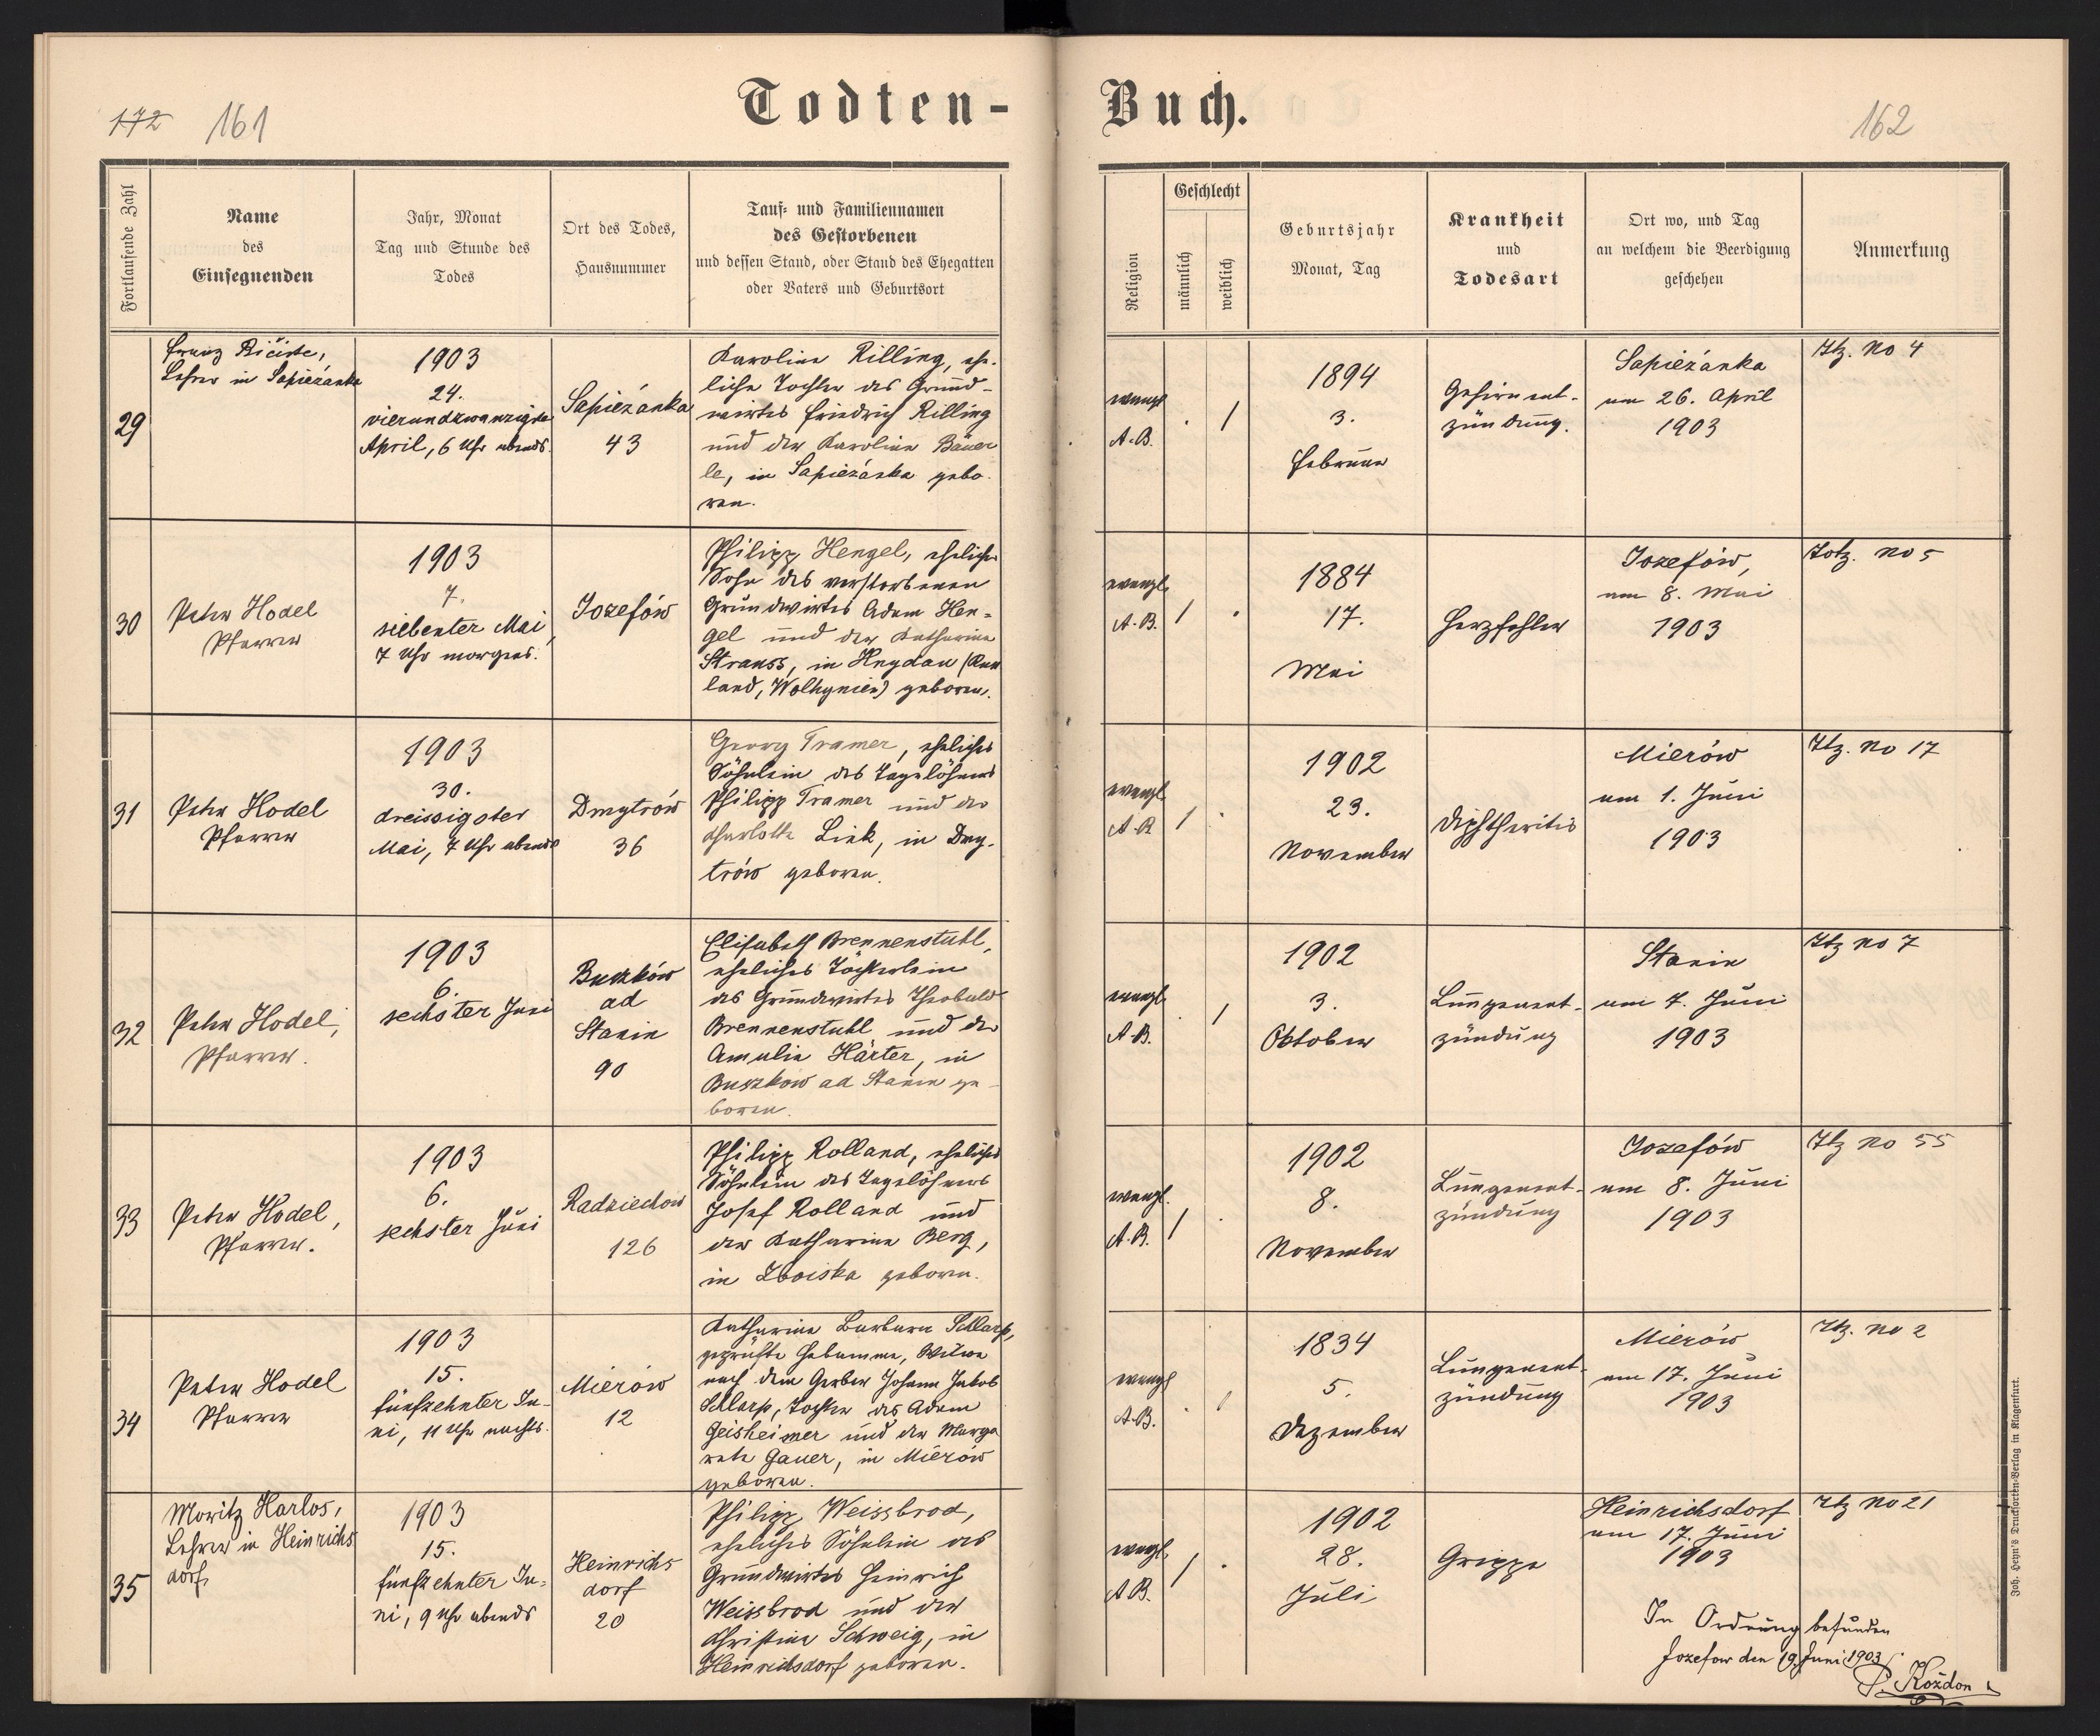 172 161
Todten-
Fortlaufende Zahl
Name
des
Einsegnenden
Jahr, Monat
Tag und Stunde des
Todes
Ort des Todes,
Hausnummer
Tauf- und Familiennamen
des Gestorbenen
und dessen Stand, oder Stand des Ehegatten
oder Vaters und Geburtsort
29
Franz
Lehrer in Sapieżanka
1903
24.
vierundzwanzigster
April, 6 Uhr abends.
Sapieżanka
43
Karoline Rilling, ehe-
liche Tochter des Grund-
wirtes Friedrich Rilling
und der Karoline Bäuer
le, in Sapieżanka gebo-
ren.
30
Peter Hodel
Pfarrer
1903
7.
siebenter Mai,
7 Uhr morgens.
Jozefów
Philipp Hengel, ehelicher
Sohn des verstorbenen
Grundwirtes Adam Hen-
gel und der Katharina
Strauss, in Heydau (Russ
land, Wolhynien) geboren.
31
Peter Hodel
Pfarrer
1903
30.
dreissigster
Mai, 7 Uhr abends
Dmytrów
36
Georg Tramer, eheliches
Söhnlein des Tagelöhners
Philipp Tramer und der
Charlotte Link, in Dmy-
trów geboren.
32
Peter Hodel,
Pfarrer.
1903
6.
sechster Juni
Buszków
ad
Stanin
90
Elisabeth Brennenstuhl,
eheliches Töchterlein
des Grundwirtes Theobald
Brennenstuhl und der
Amalie Härter, in
Buszkow ad Stanin ge-
boren.
33
Peter Hodel,
Pfarrer.
1903
6.
sechster Juni
Radziechow
126
Philipp Rolland, eheliches
Söhnlein des Tagelöhners
Josef Rolland und
der Katharina Berg,
in Zboiska geboren.
34
Peter Hodel
Pfarrer
1903
15.
fünfzehnter Ju-
ni, 11 Uhr nachts.
Mierów
12
Katharina Barbara Schlarp,
geprüfte Hebamme, Witwe
nach dem Gerber Johann Jakob
Schlarp, Tochter des Adam
Geisheimer und der Marga
rete Gauer, in Mierów
geboren.
35
Moritz Harlos,
Lehrer in Heinrichs
dorf,
1903
15.
fünfzehnter Ju-
ni, 9 Uhr abends
Heinrichs
dorf
20
Philipp Weissbrod,
eheliches Söhnlein des
Grundwirtes Heinrich
Weissbrod und der
Christine Schweig, in
Heinrichsdorf geboren.
Buch.
162
Religion
Geschlecht
männlich
weiblich
Geburtsjahr
Monat, Tag
Krankheit
und
Todesart
Ort wo, und Tag
an welchem die Beerdigung
geschehen
Anmerkung
evangl.
A.B.
. /
1894
3.
Februar
Gehirnent-
zündung.
Sapieżanka
am 26. April
1903
Ztz. No 4
evangl.
A.B.
/ .
1884
17.
Mai
Herzfehler
Jozefów,
am 8. Mai
1903
No 5
evangl.
A.B.
/ .
1902
23.
November
Diphtheritis
Mierów
am 1. Juni
1903
Ztz. No 17
evangl.
A.B.
. /
1902
3.
Oktober
Lungenent-
zündung
Stanin
am 7. Juni
1903
Ztz No 7
evangl.
A.B.
/ .
1902
8.
November
Lungenent-
zündung
Jozefów
am 8. Juni
1903
Ztz No 55
evangl.
A.B.
. /
1834
5.
Dezember
Lungenent-
zündung
Mierów
am 17. Juni
1903
Ztz. No 2
evangl.
A.B.
/ .
1902
28.
Juli
Grippe
Heinrichsdorf
am 17. Juni
1903
Ztz No 21
In Ordnung befunden
Jozefow den 19. Juni 1903.
P. Kożdon
Joh. Heyn's Drucksorten-Verlag in Klagenfurt.